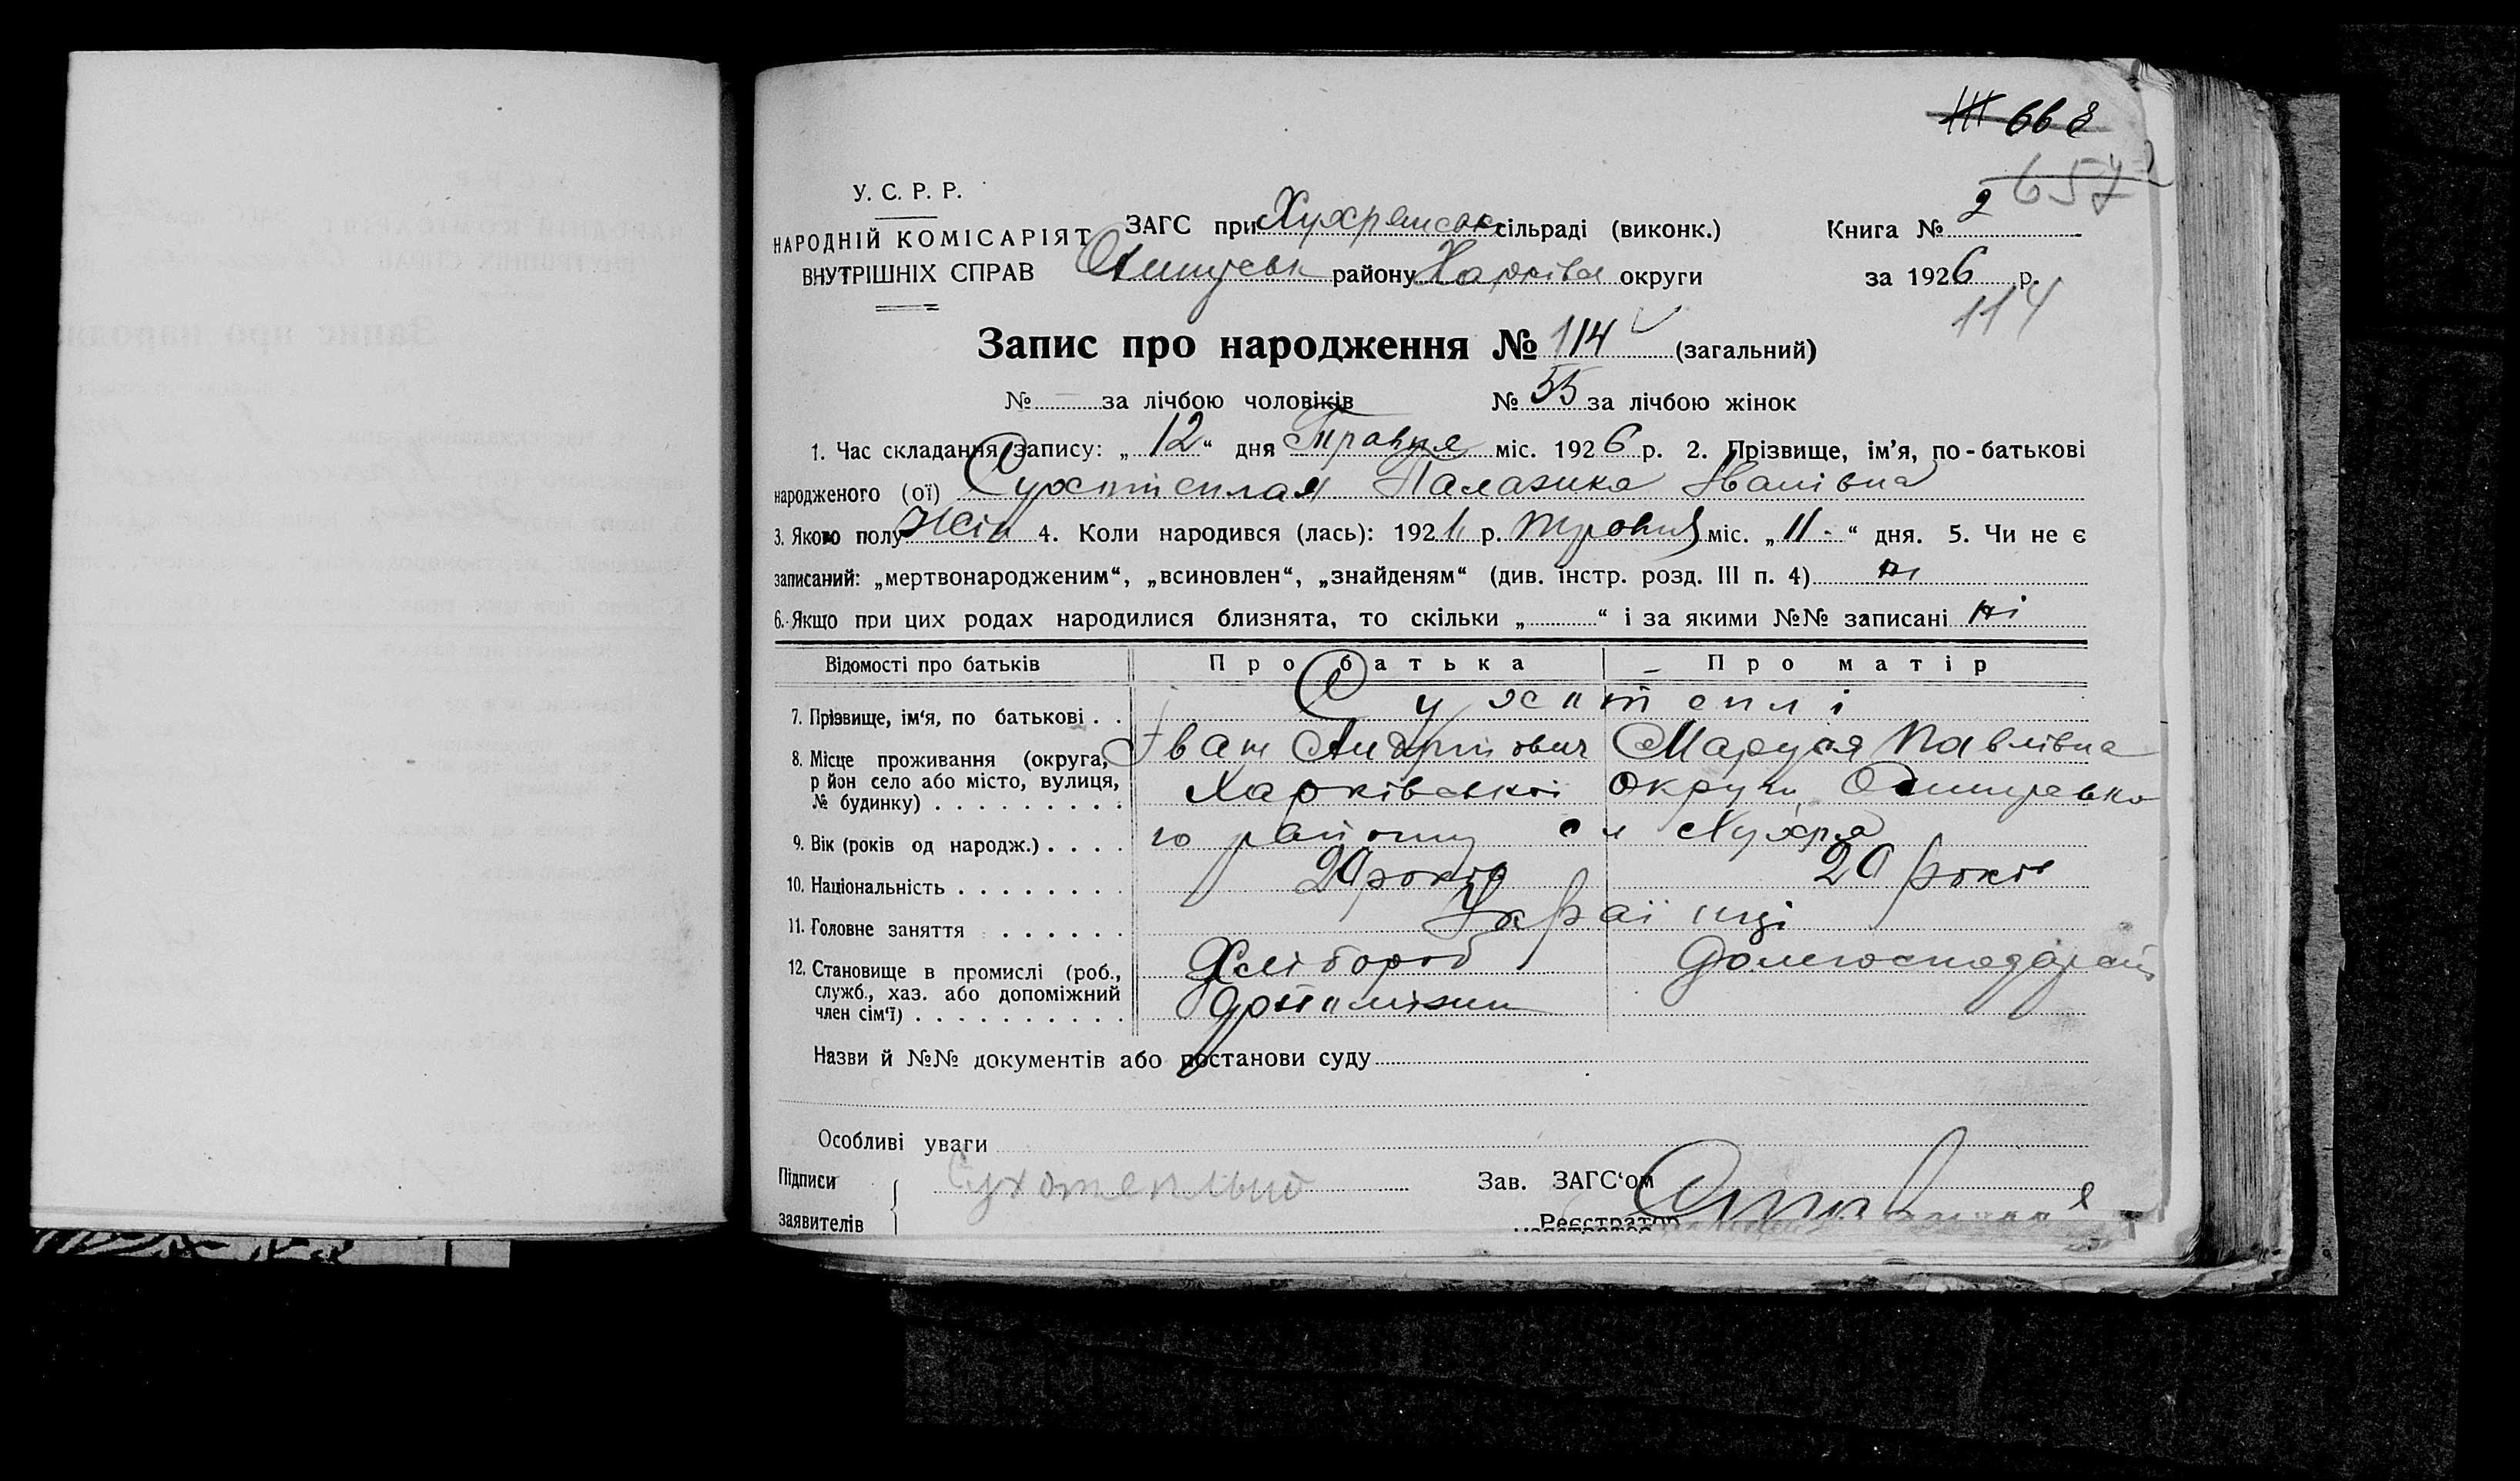 668
657
У. С. Р. Р.
НАРОДНІЙ КОМІСАРІЯТ
ВНУТРІШНІХ СПРАВ
ЗАГС при Хухрянськ сільраді (виконк.)
району Харківс округи
Книга № 2
за 1926 р.
114
Запис про народження № 114 (загальний)
№ — за лічбою чоловіків № 55 за лічбою жінок
1. Час складання запису: „ 12 “ дня Травня міс. 1926 р. 2. Прізвище, ім’я, по-батькові
народженого (ої) Палазика Іванівна
3. Якого полу Жін 4. Коли народився (лась): 192 р. травня міс. „ 11 - “ дня. 5. Чи не є
записаний: „мертвонародженим“, „всиновлен“, „знайденям“ (див. інстр. розд. III п. 4) ні
6. Якщо при цих родах народилися близнята, то скільки „ “ і за якими №№ записані ні
Відомості про батьків Про батька Про матір
7. Прізвище, ім‘я, по батькові . .
8. Місце проживання (округа,
р йон село або місто, вулиця,
№ будинку) . . . . . . . . .
Іван Андрійович Маруся Павлівна
Харківської округи
го району Хухра
9. Вік (років од народж.) . . . .
20 років 20 років
10. Національність . . . . . . . .
Українці
11. Головне заняття . . . . . .
Хлібороб
12. Становище в промислі (роб.,
служб., хаз. або допоміжний
член сім‘ї) . . . . . . . . . .
Назви й №№ документів або постанови суду
Особливі уваги
Підписи
заявителів
Сухотеплый
Зав. ЗАГС‘ом
Реєстратор